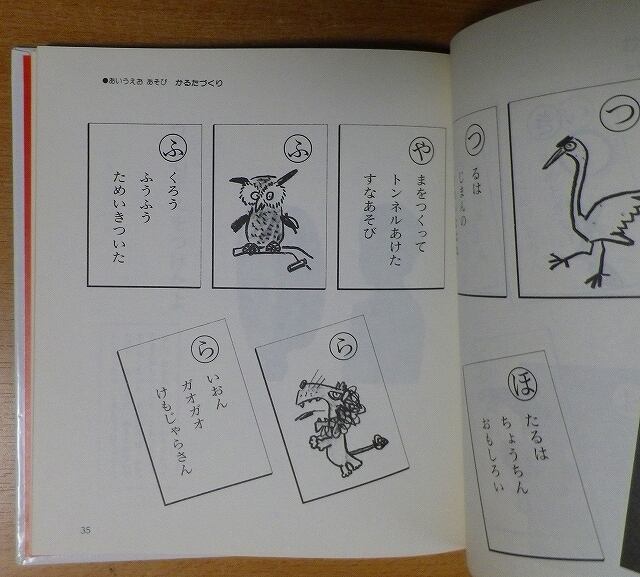 ●あいうえお あそび かるたづくり
ふ
くろう
ふうふう
ためいきついた
ふ
や
まをつくって
トンネルあけた
すなあそび
つ
るは
じまんの
つ
ら
いおん
ガオガオ
けもじゃらさん
ら
ほ
たるは
ちょうちん
おもしろい
35